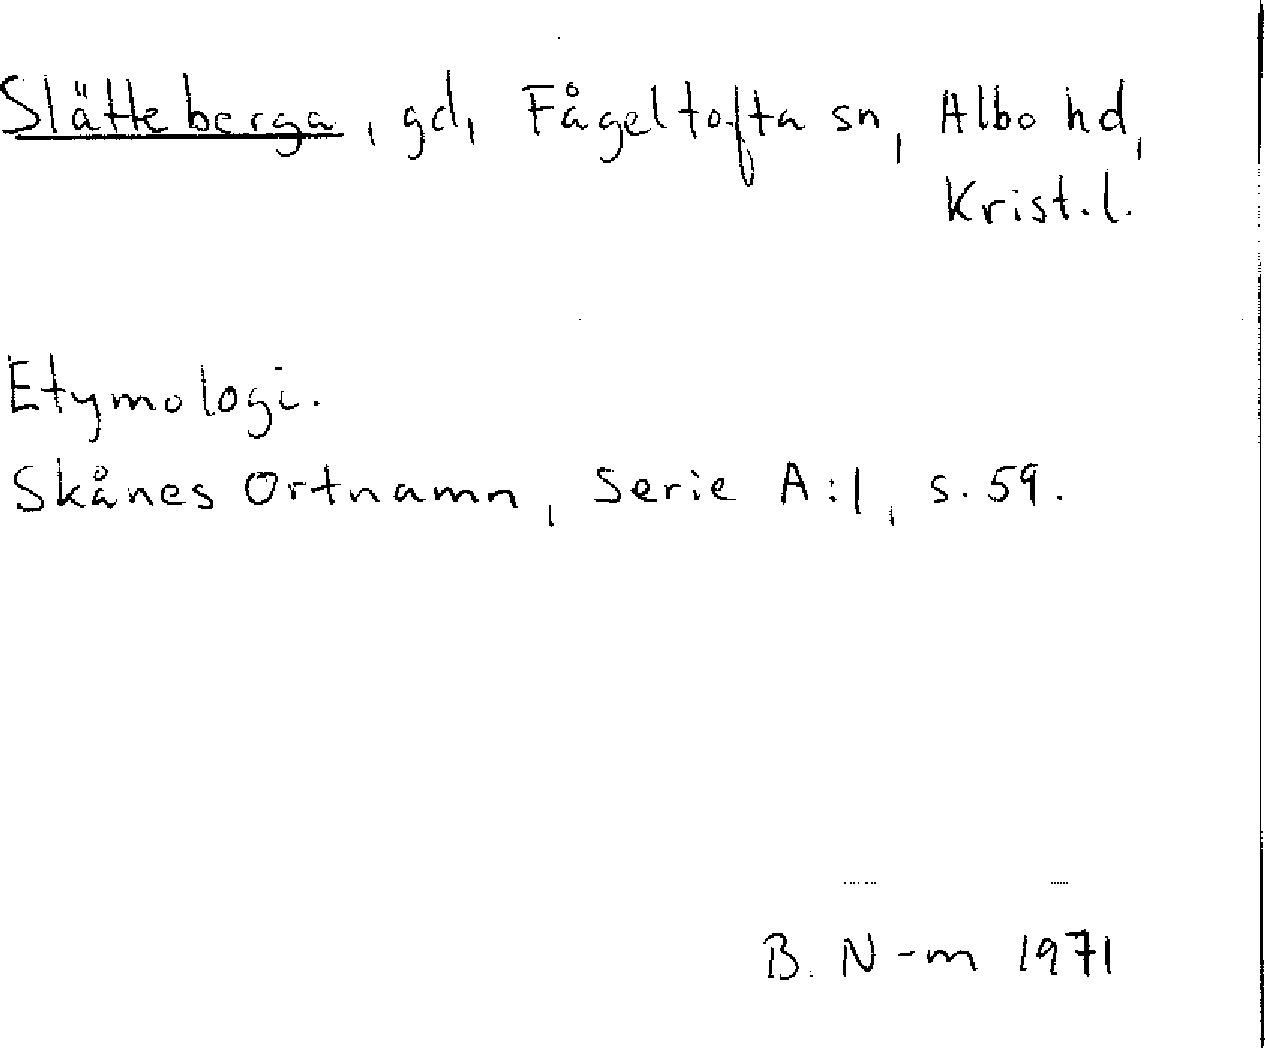 Slätteberga, gd, Fågeltofta sn, Albo hd,
Krist.l.
Etymologi.
Skånes Ortnamn, Serie A:1, s. 59.
B. N-m 1971